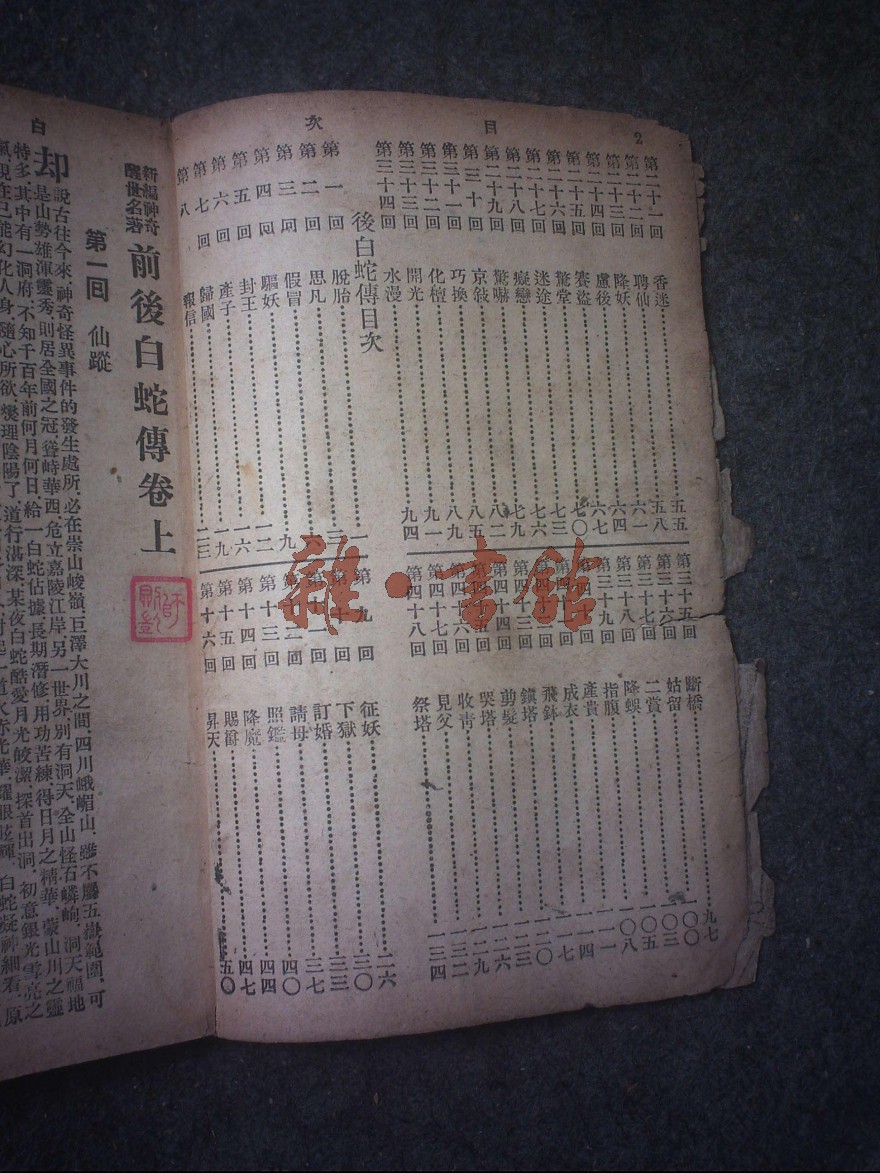 2 目次
第二十一回 香迷 五五
第二十二回 聘仙 五八
第二十三回 降妖 六一
第二十四回 盧後 六四
第二十五回 賽盜 六七
第二十六回 驚堂 七〇
第二十七回 迷途 七三
第二十八回 癡戀 七六
第二十九回 驚嚇 七九
第三十回 京敍 八二
第三十一回 巧換 八五
第三十二回 化檀 八九
第三十三回 開光 九一
第三十四回 水漫 九四
第三十五回 斷橋 九七
第三十六回 姑留 一〇〇
第三十七回 二賞 一〇三
第三十八回 降蜈 一〇五
第三十九回 指腹 一〇八
第四十回 產貴 一一一
第四十一回 成衣 一一四
第四十二回 飛鉢 一一七
第四十三回 鎮塔 一二〇
第四十四回 剪髮 一二三
第四十五回 哭塔 一二六
第四十六回 收青 一二九
第四十七回 見父 一三二
第四十八回 祭塔 一三四
後白蛇傳目次
第一回 脫胎 一
第二回 思凡 三
第三回 假冒 六
第四回 驅妖 九
第五回 封王 一二
第六回 產子
第七回 歸國 一九
第八回 報信 二三
第九回 征妖 二六
第十回 下獄 三〇
第十一回 訂婚 三三
第十二回 請母 三七
第十三回 照鑑 四〇
第十四回 降魔 四四
第十五回 賜爵 四七
第十六回 昇天 五〇
白
新編神奇
醒世名著
前後白蛇傳卷上
第一回 仙蹤
却說古往今來,神奇怪異事件的發生處所,必在崇山峻嶺,巨澤大川之間,四川峨嵋山,雖不屬五嶽範圍,可
是山勢雄渾靈秀,則居全國之冠,聳峙華西,危立嘉陵江岸,另一世界,別有洞天,全山怪石嶙峋,洞天福地
特多,其中有一洞府,不知千百年前何月何日,給一白蛇佔據,長期潛修,用功苦練,得日月之精華,蒙山川之靈
氣,現在已能幻化人身,隨心所欲,燮理陰陽了,道行湛深,某夜白蛇酷愛月光皎潔,探首出洞,初意銀光雪亮之
一道火赤光華,耀眼眩輝,白蛇凝神細看,原
雜·書館